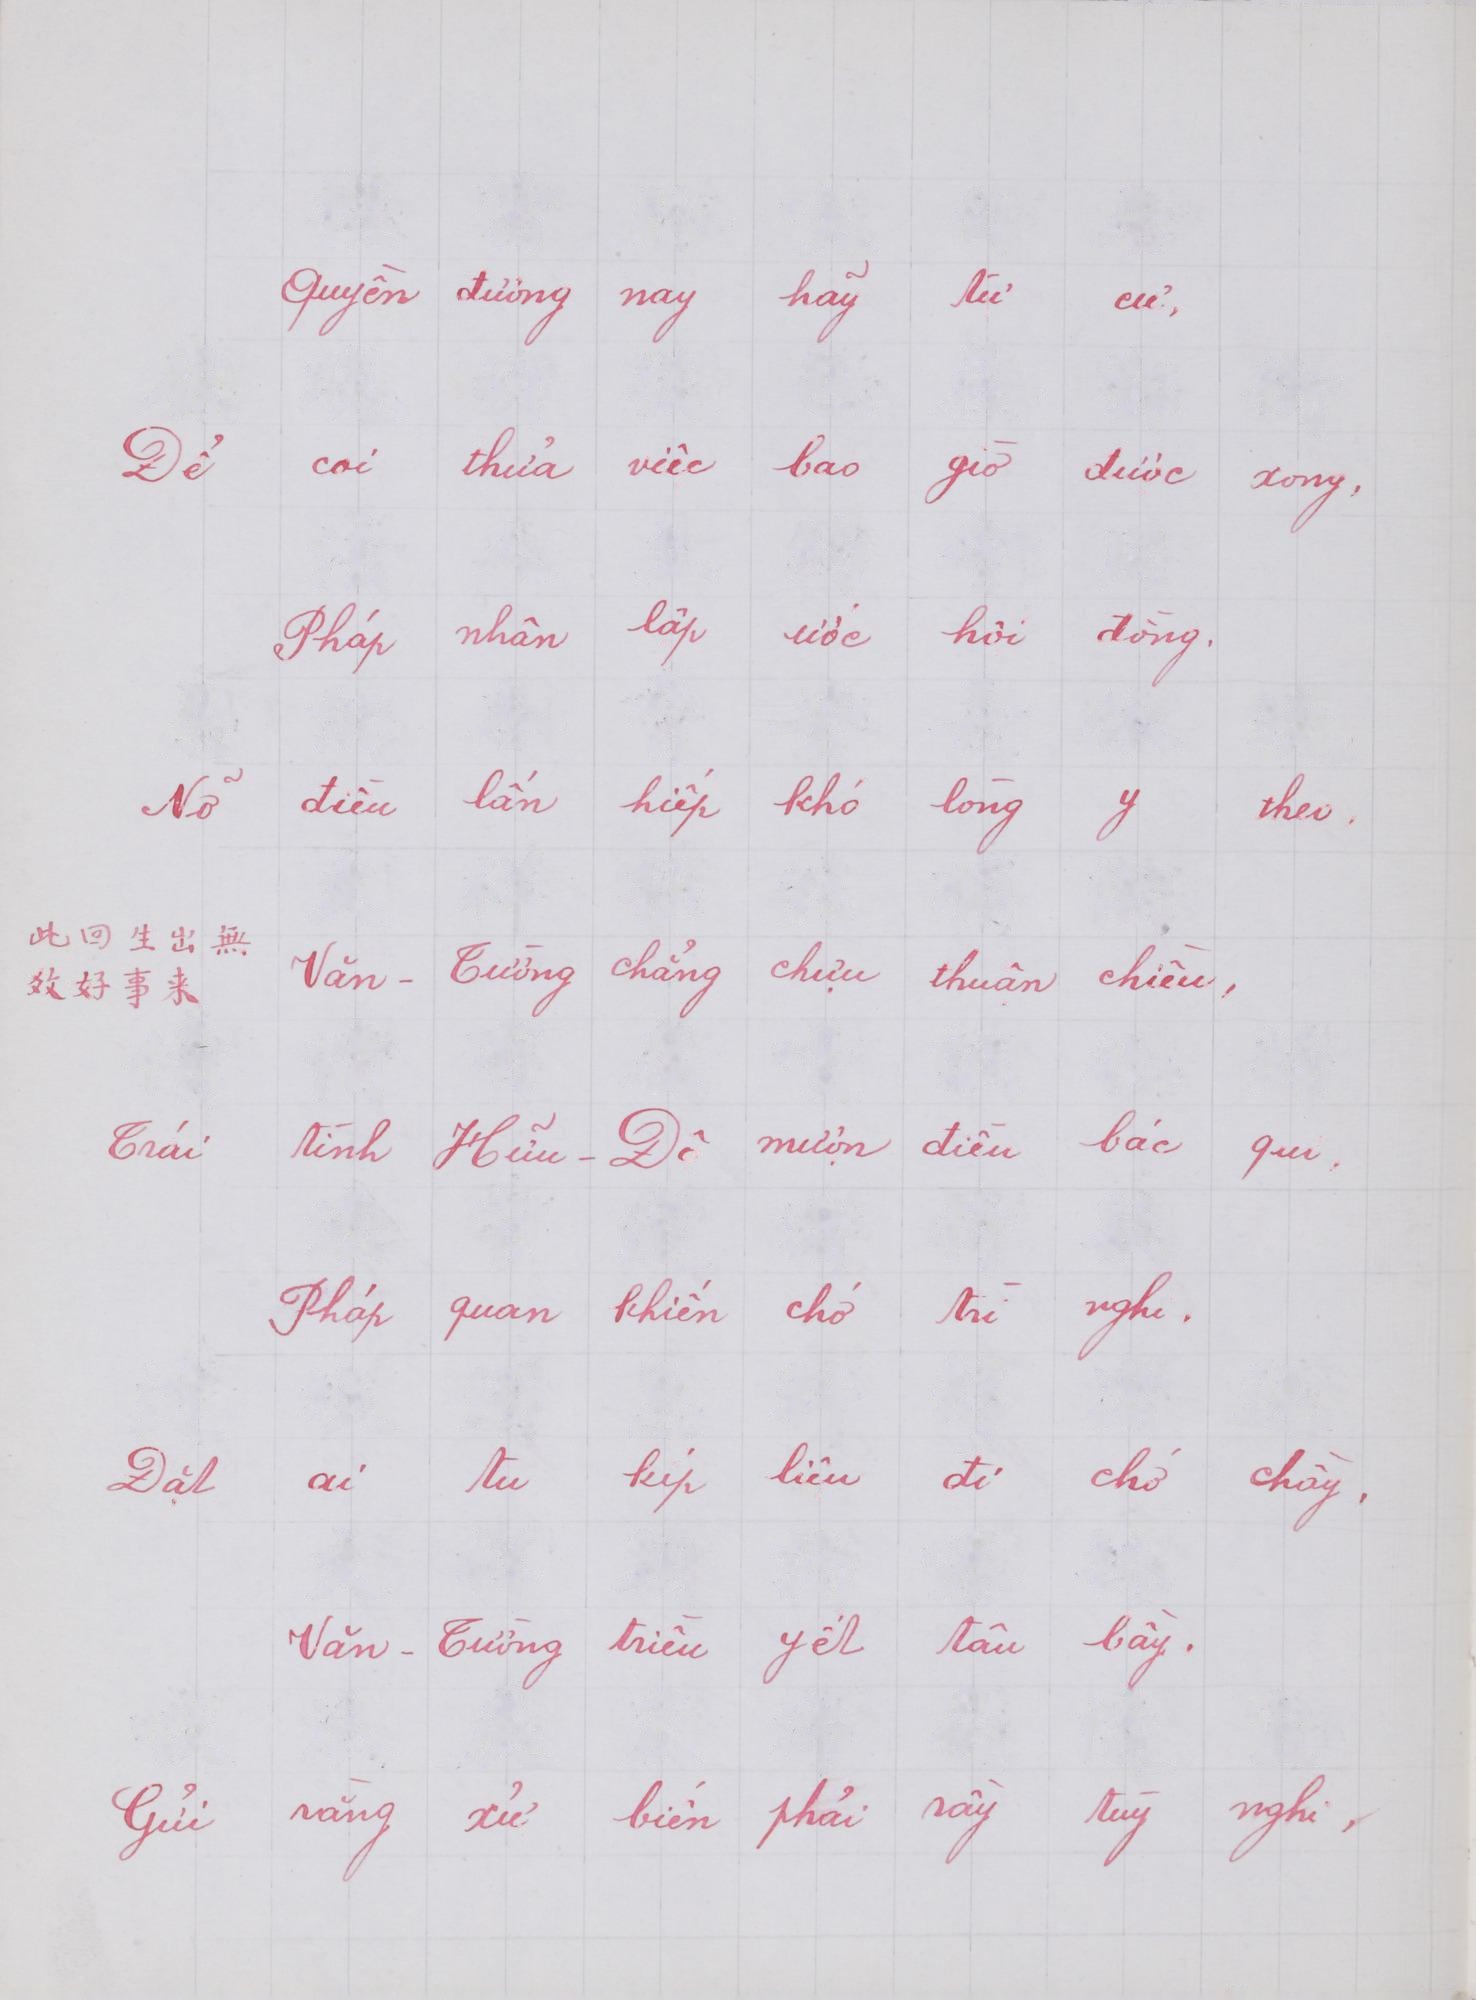 Quyền đường nay hãy tư cư,
Để coi thửa việc bao giờ được xong,
Pháp nhân lập ước hội đồng.
Nỗ điều lấn hiếp khó lòng y theo.
此回生出無
效好事来
Văn-Tường chẳng chựu thuận chiều,
Trái tình Hữu-Độ mượn điều bác qui.
Pháp quan khiến chớ trì nghi.
Đặt ai tu kíp liệu đi chớ chầy,
Văn-Tường triều yết tâu bầy.
Gửi rằng xử biến phải rầy tuỳ nghi,